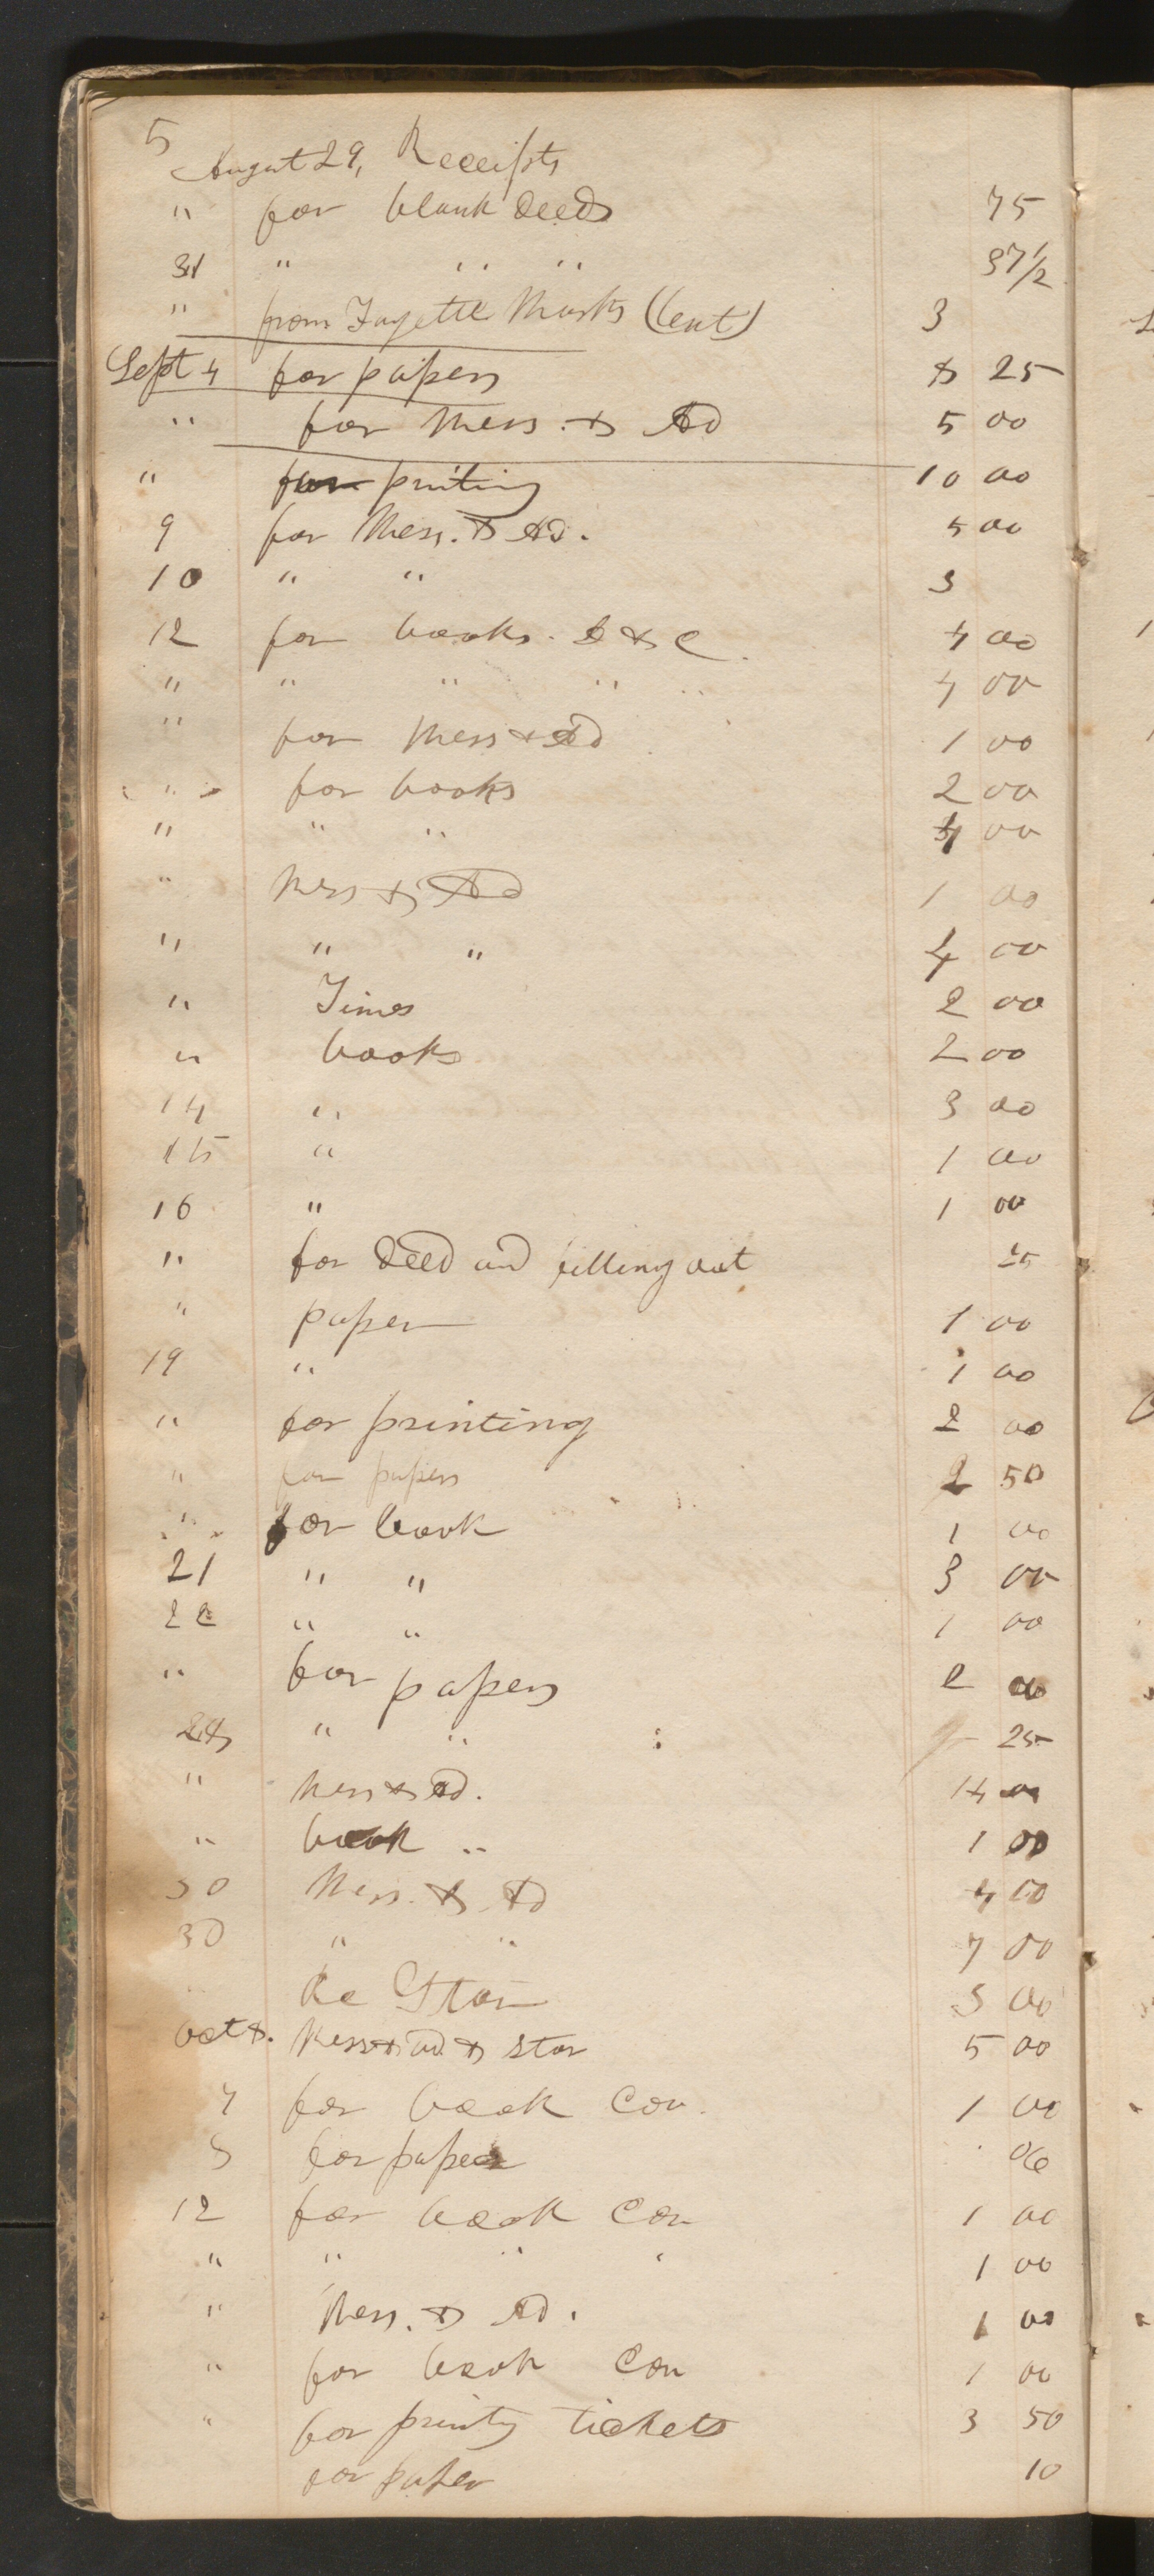 5
August 29, Receipts
" for blank deeds 75
31 " " " 37 1/2
" from Fayette Marks (lent) 3
Sept 4 for papers & 25
" for Mess. & Ad 5 00
" for printing 10 00
9 for Mess. & Ad. 5 00
10 " " 3
12 for books. D & C. 4 00
" " " " " 4 00
" for Mess & Ad 1 00
" for books 2 00
" " " 4 00
" Mess & Ad 1 00
" " " 4 00
" Times 2 00
" books 2 00
14 " 3 00
15 " 1 00
16 " 1 00
" for deed and filling out 25
" paper 1 00
19 " 1 00
" for printing 2 00
" for papers 2 50
" for book 1 00
21 " " 3 00
22 " " 1 00
" for papers 2 00
24 " " 25
" Mess & Ad. 14 00
" book " 1 00
30 Mess. & Ad 4 00
30 " " 7 00
Star 3 00
Oct Mess & ad. & Star 5 00
7 for book Cov. 1 00
for paper 06
12 for book Cov 1 00
" " " " 1 00
" Mess. & Ad. 1 00
" for book Cov 1 00
" for printg tickets 3 50
for paper 10